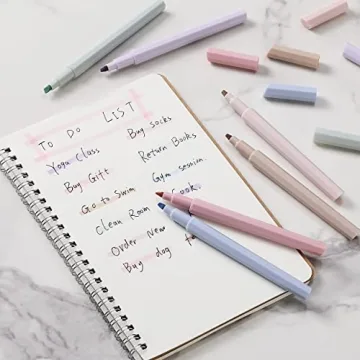 TO DO LIST
Yoga Class
Buy Gift
Go to Swim
Clean Room
Order New
Buy dog
Buy socks
Return Books
Gym session
Cook